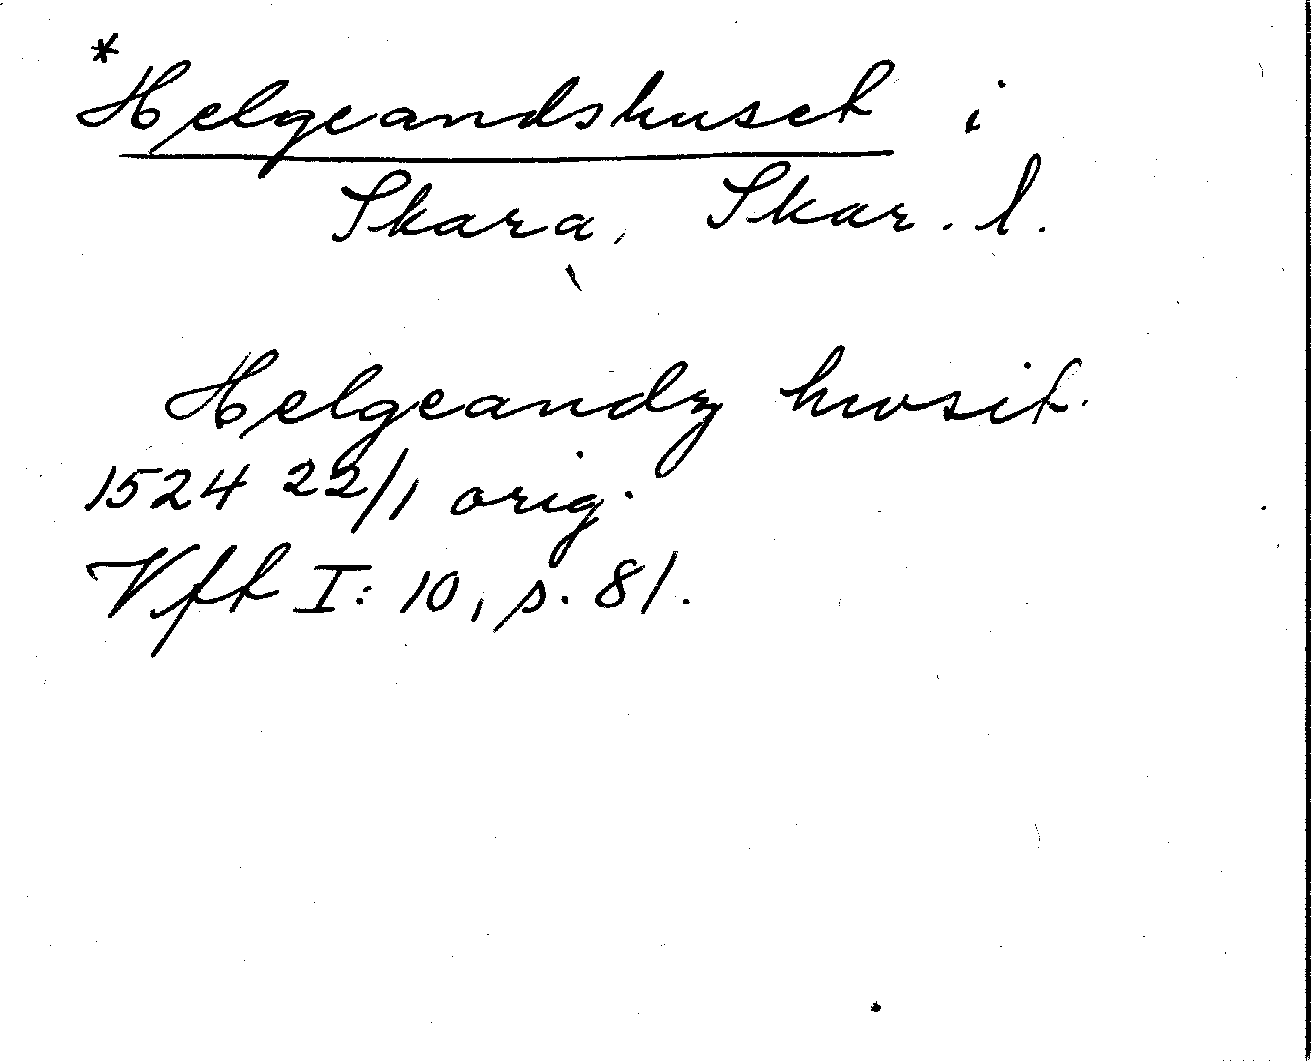 *Helgeandshuset i
Skara, Skar. l.
Helgeandz hwsit.
1524 22/1 orig.
Vft I: 10, s. 81.